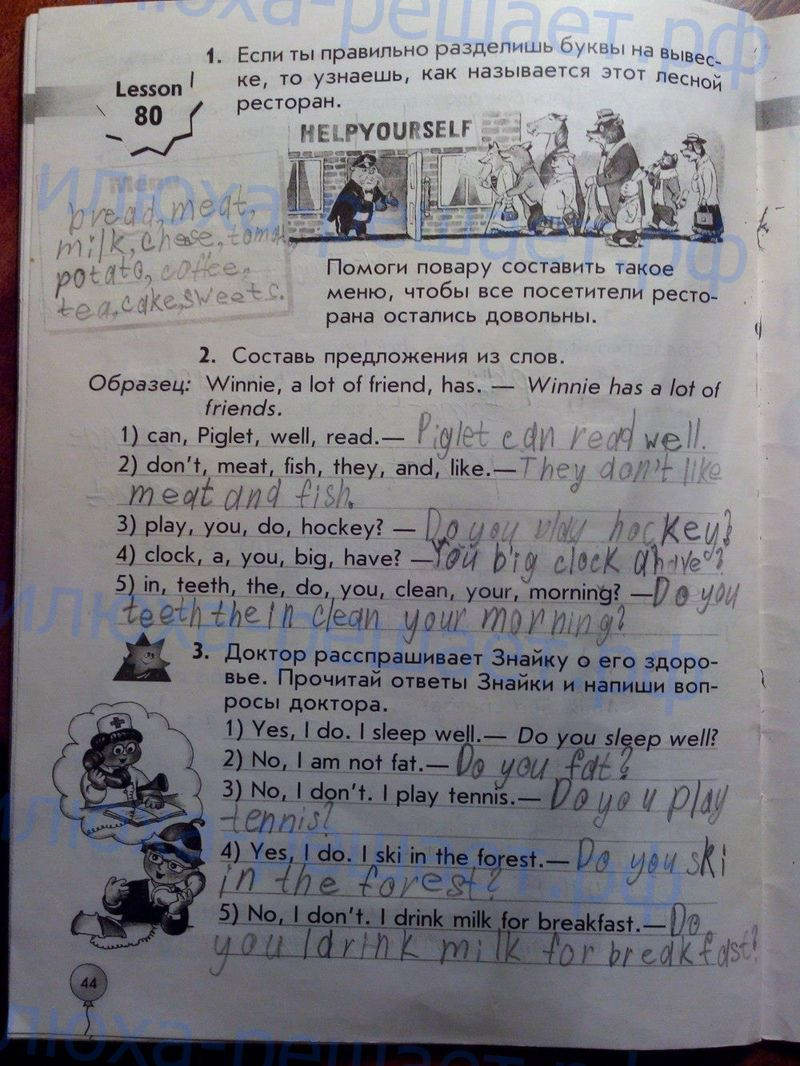 1. Если ты правильно разделишь буквы на вывес-
ке, то узнаешь, как называется этот лесной
ресторан.
Lesson
80
HELPYOURSELF
Menu
bread, meat,
milk, chese, tomat,
potato, coffee,
tea, cake, sweets.
Помоги повару составить такое
меню, чтобы все посетители ресто-
рана остались довольны.
2. Составь предложения из слов.
Образец: Winnie, a lot of friend, has. — Winnie has a lot of
friends.
1) can, Piglet, well, read.— Piglet can read well.
2) don't, meat, fish, they, and, like.— They don't like
meat and fish.
3) play, you, do, hockey? — Do you play hockey?
4) clock, a, you, big, have? — You big clock a have?
5) in, teeth, the, do, you, clean, your, morning? — Do you
teeth the in clean your morning?
3. Доктор расспрашивает Знайку о его здоро-
вье. Прочитай ответы Знайки и напиши воп-
росы доктора.
1) Yes, I do. I sleep well.— Do you sleep well?
2) No, I am not fat.— Do you fat?
3) No, I don't. I play tennis.— Do you play
tennis?
4) Yes, I do. I ski in the forest.— Do you ski
in the forest?
5) No, I don't. I drink milk for breakfast.— Do
you I drink milk for breakfast?
44
илюха-решает.рф
илюха-решает.рф
илюха-решает.рф
илюха-решает.рф
илюха-решает.рф